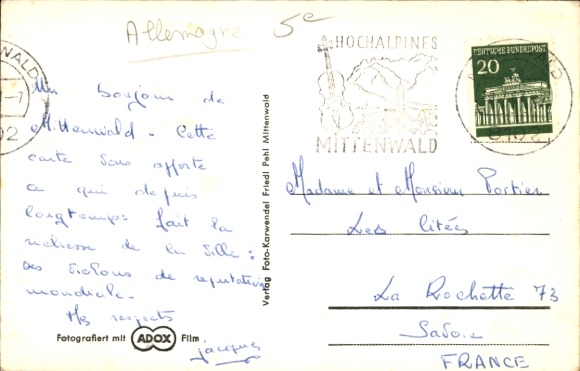 Allemagne
5c
Un bonjour de
Mittenwald. Cette
carte vous apporte
ce qui depuis
longtemps fait la
richesse de la ville :
ses violons de reputation
mondiale.
Mes respects
Jacques
Fotografiert mit ADOX Film
Verlag Foto-Karwendel Friedl Pehl Mittenwald
HOCHALPINES
MITTENWALD
DEUTSCHE BUNDESPOST
20
Madame et Monsieur Portier
Les litées
La Rochette 73
Savoie
FRANCE